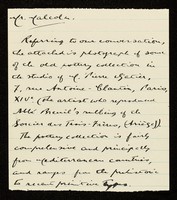 Mr. Calder.
Referring to our conversation,
the attached is photograph of some
of the old pottery collection in
the studio of M. Pierre
7, rue Antoine - Chantin, Paris,
XIVe (the artist who reproduced
Abbé Breuil's rubbing of the
Sorcier des Trois-Frères, (Ariège)).
The pottery collection is fairly
comprehensive and principally
from mediterranean countries,
and ranges from the prehistoric
to recent primitive types.